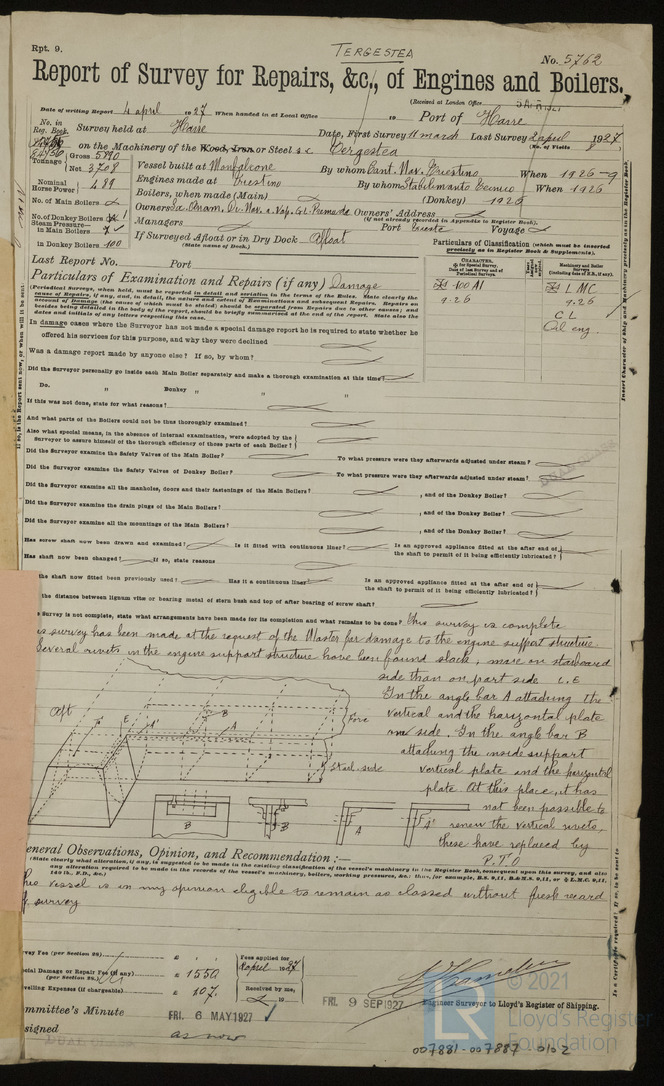 TERGESTEA
Rpt. 9.
No. 5762
Report of Survey for Repairs, &c., of Engines and Boilers.
(Received at London Office
Date of writing Report 4 april 1927 When handed in at Local Office 19 Port of Havre
No. in Reg. Book.
Survey held at Havre Date, First Survey 11 march Last Survey 2 april 1927
(No. of Visits 8)
on the Machinery of the Wood, Iron or Steel s.c Tergestea
Tonnage Gross 5890
Net 3708
Vessel built at Monfalcone By whom Cant. Nav. Triestino When 1926-9
Engines made at By whom Stabilimento Tecnico When 1926
Nominal Horse Power 489
Boilers, when made (Main) (Donkey) 1926
No. of Main Boilers
Owners Owners' Address
(if not already recorded in Appendix to Register Book).
No. of Donkey Boilers 1
Managers Port Trieste Voyage
Steam Pressure—
in Main Boilers
in Donkey Boilers 100
If Surveyed Afloat or in Dry Dock Afloat
(State name of Dock.)
Particulars of Classification (which must be inserted precisely as in Register Book & Supplements).
Last Report No. Port
CHARACTER.
Machinery and Boiler Surveys
(including date of N.B., if any).
100 A1
9.26
LMC
9.26
CL
Oil eng.
Particulars of Examination and Repairs (if any) Damage
(Periodical Surveys, when held, must be reported in detail and seriatim in the terms of the Rules. State clearly the cause of Repairs, if any, and, in detail, the nature and extent of Examinations and subsequent Repairs. Repairs on account of Damage (the cause of which must be stated) should be separated from Repairs due to other causes; and besides being detailed in the body of the report, should be briefly summarised at the end of the report. State also the dates and initials of any letters respecting this case.
In damage cases where the Surveyor has not made a special damage report he is required to state whether he
offered his services for this purpose, and why they were declined
Was a damage report made by anyone else? If so, by whom?
Did the Surveyor personally go inside each Main Boiler separately and make a thorough examination at this time?
Do. " Donkey " "
If this was not done, state for what reasons?
And what parts of the Boilers could not be thus thoroughly examined?
Also what special means, in the absence of internal examination, were adopted by the
Surveyor to assure himself of the thorough efficiency of those parts of each Boiler?
Did the Surveyor examine the Safety Valves of the Main Boiler? To what pressure were they afterwards adjusted under steam?
Did the Surveyor examine the Safety Valves of Donkey Boiler? To what pressure were they afterwards adjusted under steam?
Did the Surveyor examine all the manholes, doors and their fastenings of the Main Boilers? , and of the Donkey Boiler?
Did the Surveyor examine the drain plugs of the Main Boilers? , and of the Donkey Boiler?
Did the Surveyor examine all the mountings of the Main Boilers? , and of the Donkey Boiler?
Has screw shaft now been drawn and examined? Is it fitted with continuous liner? Is an approved appliance fitted at the after end of the shaft to permit of it being efficiently lubricated?
Has shaft now been changed? If so, state reasons
the shaft now fitted been previously used? Has it a continuous liner Is an approved appliance fitted at the after end of the shaft to permit of it being efficiently lubricated?
the distance between lignum vitæ or bearing metal of stern bush and top of after bearing of screw shaft?
Survey is not complete, state what arrangements have been made for its completion and what remains to be done? This survey is complete
survey has been made at the request of the Master for damage to the engine support structure.
Several rivets in the engine support structure have been found slack, more on starboard
side than on port side i.e
In the angle bar A attaching the
vertical and the horizontal plate
side. In the angle bar B
attaching the inside support
vertical plate and the horizontal
plate. At this place, it has
not been possible to
renew the vertical rivets,
these have replaced by
P.T.O
Aft
Fore
Starb. side
E
A
B
B
B
A
A'
eneral Observations, Opinion, and Recommendation:—
(State clearly what alteration, if any, is suggested to be made in the existing classification of the vessel's machinery in the Register Book, consequent upon this survey, and also any alteration required to be made in the records of the vessel's machinery, boilers, working pressures, &c.: thus, for example, B.S. 9,11, B.&M.S. 9,11, or L.M.C. 9,11, 140 lb., F.D., &c.)
vessel is in my opinion eligible to remain as classed without fresh record
of survey
vey Fee (per Section 29)
cial Damage or Repair Fee (if any)
(per Section 29.)
£ 1550
velling Expenses (if chargeable)
£ 107.
Fees applied for
april 1927
Received by me,
19
Engineer Surveyor to Lloyd's Register of Shipping.
FRI. 9 SEP 1927
mmittee's Minute FRI. 6 MAY 1927
signed as now
© 2021
LR
Lloyd's Register
Foundation
007881-007887-0102